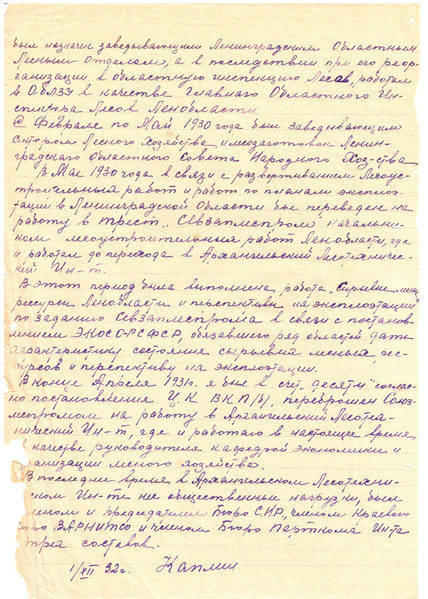 был назначен заведывающим Ленинградским Областным
Лесным отделом, а в последствии при его реор-
ганизации в областную инспекцию Лесов, работал
в ОблЗУ в качестве Главного Областного Ин-
спектора Лесов Ленобласти.
С Февраля по Май 1930 года был заведывающим
Сектором Лесного Хозяйства и лесозаготовок Ленин-
градского Областного Совета Народного Хоз-ства
В Мае 1930 года в связи с развертыванием Лесоус-
троительных работ и работ по планам эксплоа-
тации в Ленинградской Области был переведен на
работу в трест „Севзаплеспром" начальни-
ком лесоустроительных работ Ленобласти, где
и работал до перехода в Архангельский Лесотехниче-
ский Ин-т.
В этот период была выполнена работа „Сырьевые лесн.
ресурсы Ленобласти и перспективы их эксплоатации"
по заданию Севзаплеспрома в связи с постанов-
лением ЭКОСО РСФСР, обязавшего ряд областей дать
характеристику состояния сырьевых лесных рес-
сурсов и перспективу их эксплоатации.
В конце Апреля 1931 г. я был в счет „десяти" соглас-
но постановления Ц.К. ВКП/б/, переброшен Союз-
леспромом на работу в Архангельский Лесотех-
нический Ин-т, где и работаю в настоящее время
в качестве руководителя кафедрой экономики и
организации лесного хозяйства.
В последнее время в Архангельском Лесотехни-
ческом Ин-те нес общественные нагрузки, был
членом и председателем Бюро С.Н.Р., членом Краевого
ВАРНИТСО и членом Бюро Парткома Ин-та
трех составов.
1/XII 32 г. Каплин